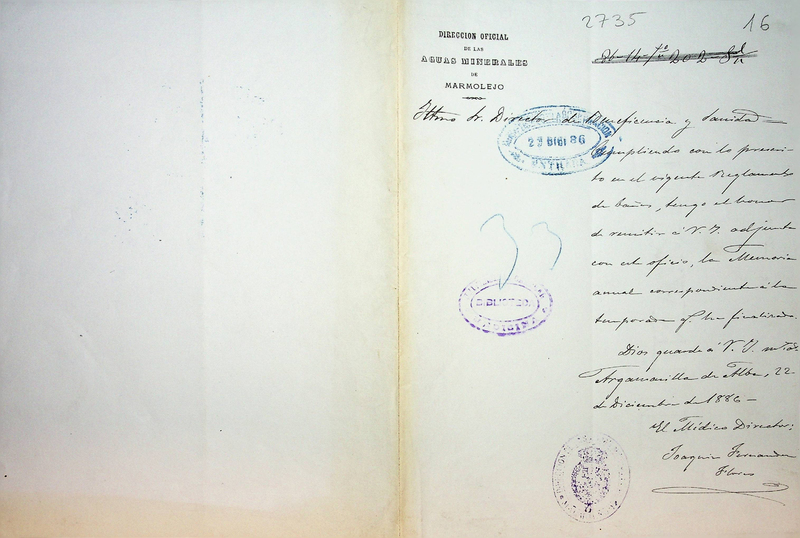 2735
16
DIRECCION OFICIAL
DE LAS
AGUAS MINERALES
DE
MARMOLEJO
Iltmo Sr. Director de Beneficencia y Sanidad
23 DIC 86
ENTRADA
Cumpliendo con lo prescri-
to en el vigente Reglamento
de baños, tengo el honor
de remitir á V. I. adjunta
con este oficio, la Memoria
anual correspondiente á la
temporada q. ha finalizado.
BIBLIOTECA
MEDICINA
Dios guarde á V. I. m. a.
Argamasilla de Alba, 22
de Diciembre de 1886 —
El Médico Director:
Joaquin Fernandez
Flores